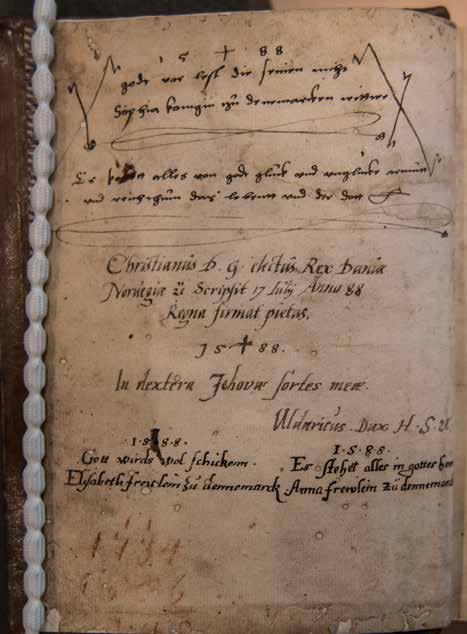 15 + 88
gode var lest die seinen nicht
Sophia konigin zu denemarcken wittwe
Es kompt alles von gode gluck und ungluck armut
und reichthum das lebent und der dott
Christianus D. G. electus Rex Daniæ
Norvegiæ zc Scripsit 17 Iulij Anno 88
Regna firmat pietas.
15 + 88.
In dextera Jehovæ sortes meæ.
Uldaricus. Dux H. S. zc.
1.5.88.
Gott wirds wol schicken.
Elisabeth frewlein zu dennemarck
1.5.88.
Es stehet alles in gottes hen
Anna frewlein zu dennemarck